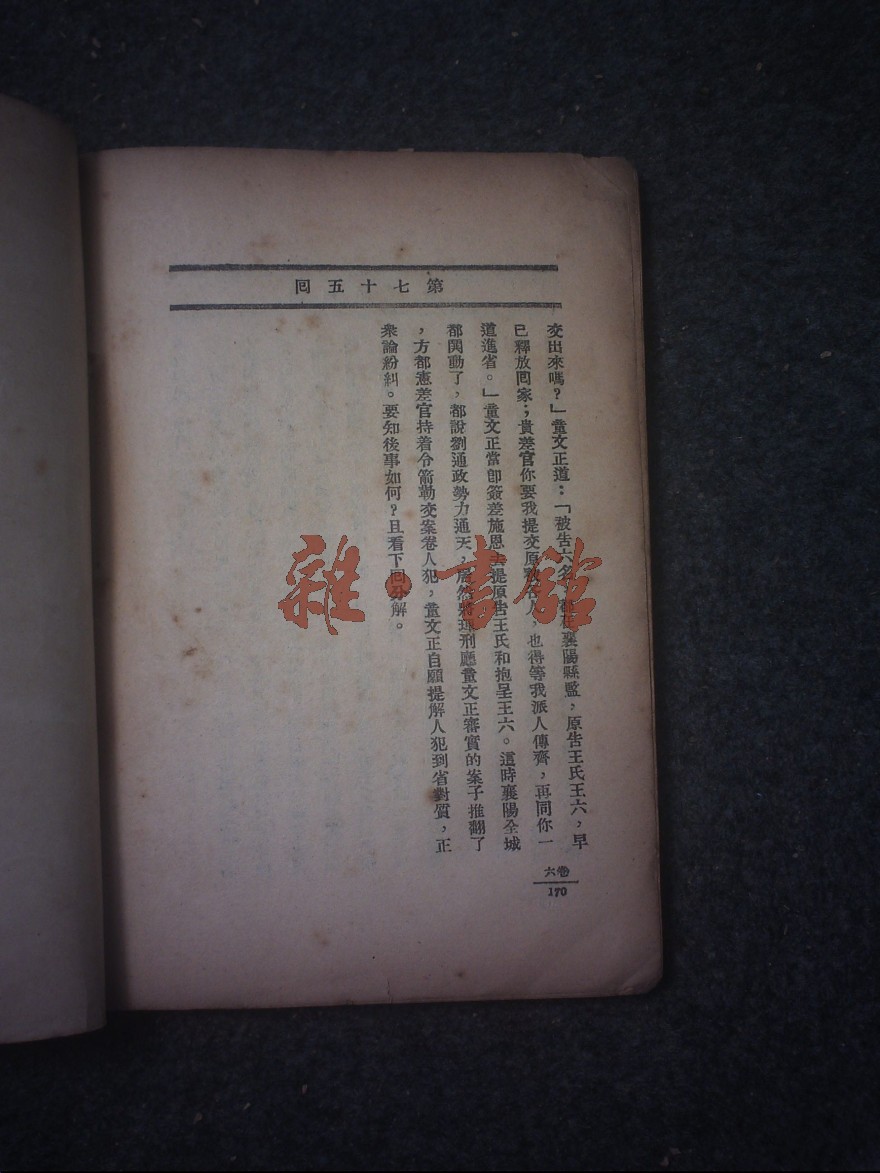 第七十五囘
交出來嗎？」童文正道：「被告六名，都在襄陽縣監，原告王氏王六，早
已釋放囘家；貴差官你要我提交原被各人，也得等我派人傳齊，再同你一
道進省。」童文正當卽簽差施恩去提原告王氏和抱呈王六。這時襄陽全城
都閧動了，都說劉通政勢力通天，居然將理刑廳童文正審實的案子推翻了
，方都憲差官持着令箭勒交案卷人犯，童文正自願提解人犯到省對質，正
衆論紛糾。要知後事如何？且看下囘分解。
卷六
170
雜·書館